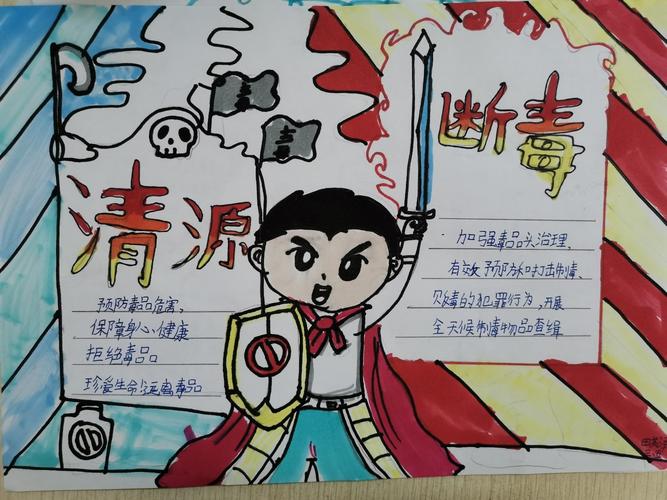 清源
断毒
毒
毒
预防毒品危害,
保障身心健康
拒绝毒品
珍爱生命远离毒品
加强毒品头治理、
有效预防和打击制毒、
贩毒的犯罪行为,开展
全天候制毒物品查缉